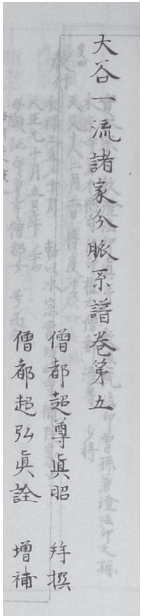 大谷一流諸家分脈系譜卷第五
僧都超尊眞昭 幷撰
僧都超弘眞詮 増補